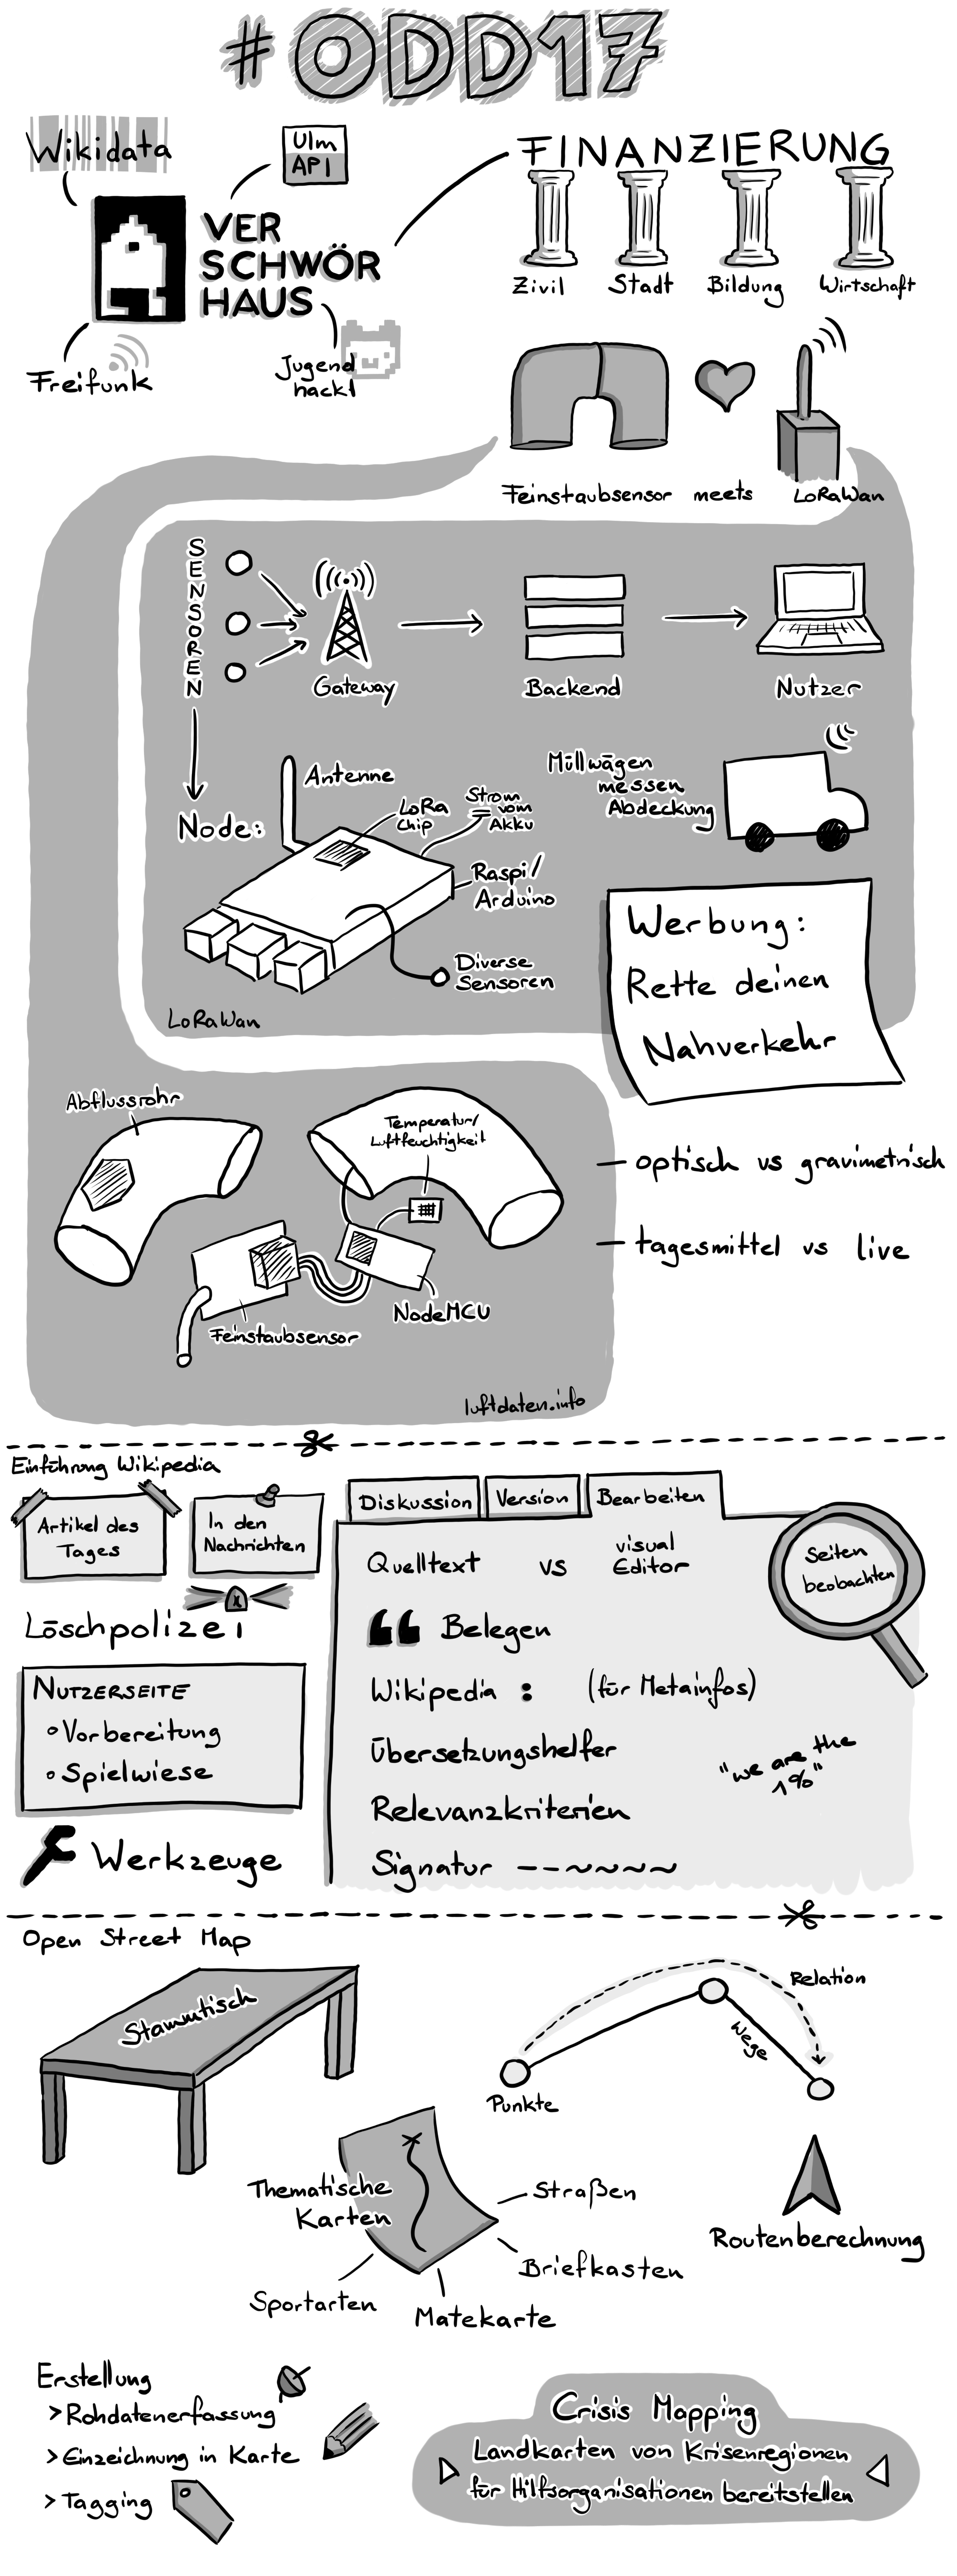 #ODD17
Wikidata
Ulm
API
VER
SCHWÖR
HAUS
Freifunk
Jugend
hackt
FINANZIERUNG
Zivil
Stadt
Bildung
Wirtschaft
Feinstaubsensor meets LoRaWan
SENSOREN
Gateway
Backend
Nutzer
Node:
Antenne
LoRa
Chip
Strom
vom
Akku
Raspi/
Arduino
Diverse
Sensoren
LoRaWan
Müllwägen
messen
Abdeckung
Werbung:
Rette deinen
Nahverkehr
Abflussrohr
Temperatur/
Luftfeuchtigkeit
Feinstaubsensor
NodeMCU
luftdaten.info
– optisch vs gravimetrisch
– tagesmittel vs live
Einführung Wikipedia
Artikel des
Tages
In den
Nachrichten
Löschpolizei
NUTZERSEITE
• Vorbereitung
• Spielwiese
Werkzeuge
Diskussion
Version
Bearbeiten
Quelltext vs visual
Editor
❝ Belegen
Wikipedia : (für Metainfos)
Übersetzungshelfer
Relevanzkriterien
Signatur --~~~~
Seiten
beobachten
"we are the
1%"
Open Street Map
Stammtisch
Punkte
Wege
Relation
Thematische
Karten
Straßen
Briefkasten
Matekarte
Sportarten
Routenberechnung
Erstellung
> Rohdatenerfassung
> Einzeichnung in Karte
> Tagging
Crisis Mapping
Landkarten von Krisenregionen
für Hilfsorganisationen bereitstellen